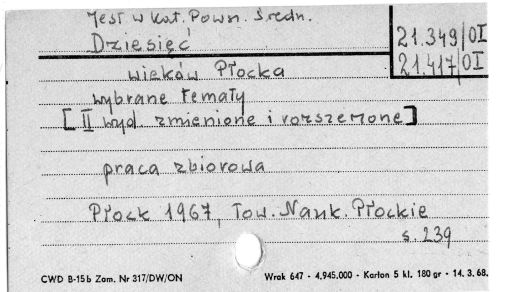 Jest w Kat. Powsz. Średn.
Dziesięć
21.349/OI
21.417/OI
wieków Płocka
wybrane tematy
[II wyd. zmienione i rozszerzone]
praca zbiorowa
Płock 1967, Tow. Nauk. Płockie
s. 239
CWD B-15b Zam. Nr 317/DW/ON
Wrak 647 - 4.945.000 - Karton 5 kl. 180 gr - 14. 3. 68.